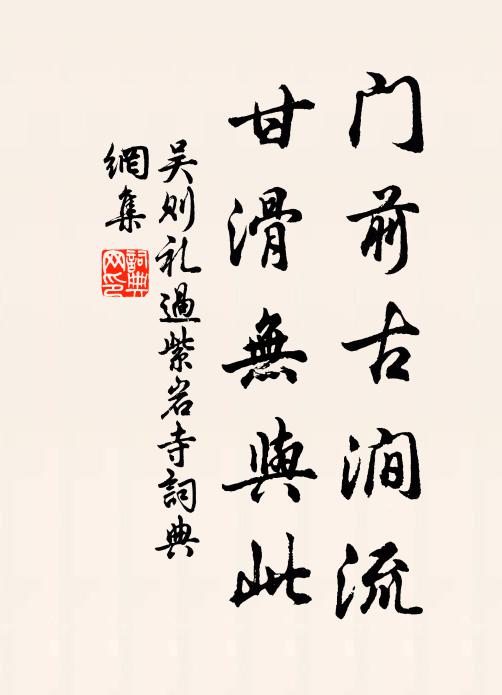 门前古涧流
甘滑無與此
吴则礼過紫岩寺詞典
網集
詞典
网印